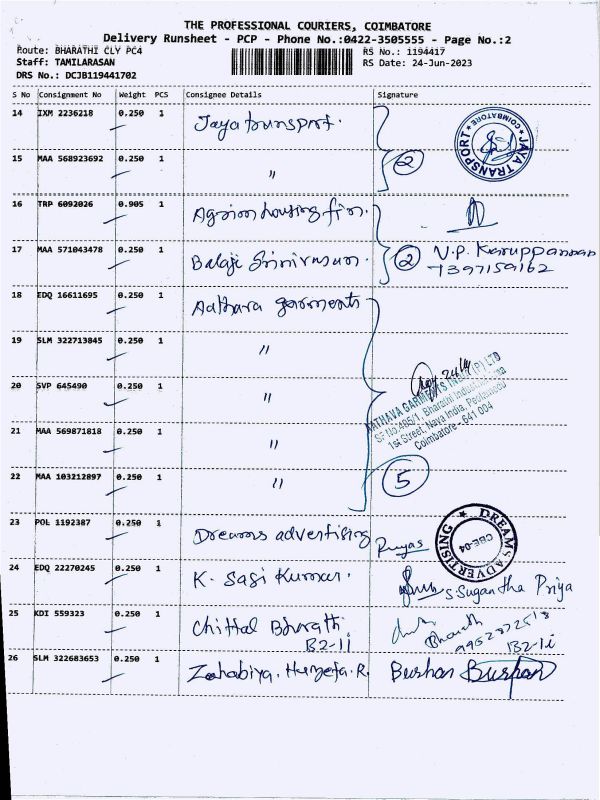 THE PROFESSIONAL COURIERS, COIMBATORE
Delivery Runsheet - PCP - Phone No.:0422-3505555 - Page No.:2
Route: BHARATHI CLY PC4
RS No.: 1194417
Staff: TAMILARASAN
RS Date: 24-Jun-2023
DRS No.: DCJB119441702
S No Consignment No Weight PCS Consignee Details Signature
14 IXM 2236218 0.250 1 Jaya transport.
JAYA TRANSPORT COIMBATORE
15 MAA 568923692 0.250 1 " 2
16 TRP 6092026 0.905 1 Agrim housing fin.
17 MAA 571043478 0.250 1 Balaji Srinivasan. 2 N.P. Karuppannan
7397159162
18 EDQ 16611695 0.250 1 Aathava garments
19 SLM 322713845 0.250 1 "
20 SVP 645490 0.250 1 "
AATHAVA GARMENTS INDIA (P) LTD
SF No.495/1, Bharathi Industrial
1st Street, Nava India, Peelamedu
Coimbatore - 641 004
21 MAA 569871818 0.250 1 "
22 MAA 103212897 0.250 1 " 5
23 POL 1192387 0.250 1 Dreams advertising
DREAMS ADVERTISING CBE-04
24 EDQ 22270245 0.250 1 K. Sasi Kumar. S. Sugantha Priya
25 KDI 559323 0.250 1 Chittal Bharathi. Bharath
B2-1i 9952872518
B2-1i
26 SLM 322683653 0.250 1 Zahabiya. Huzefa. R. Burhan Burhan